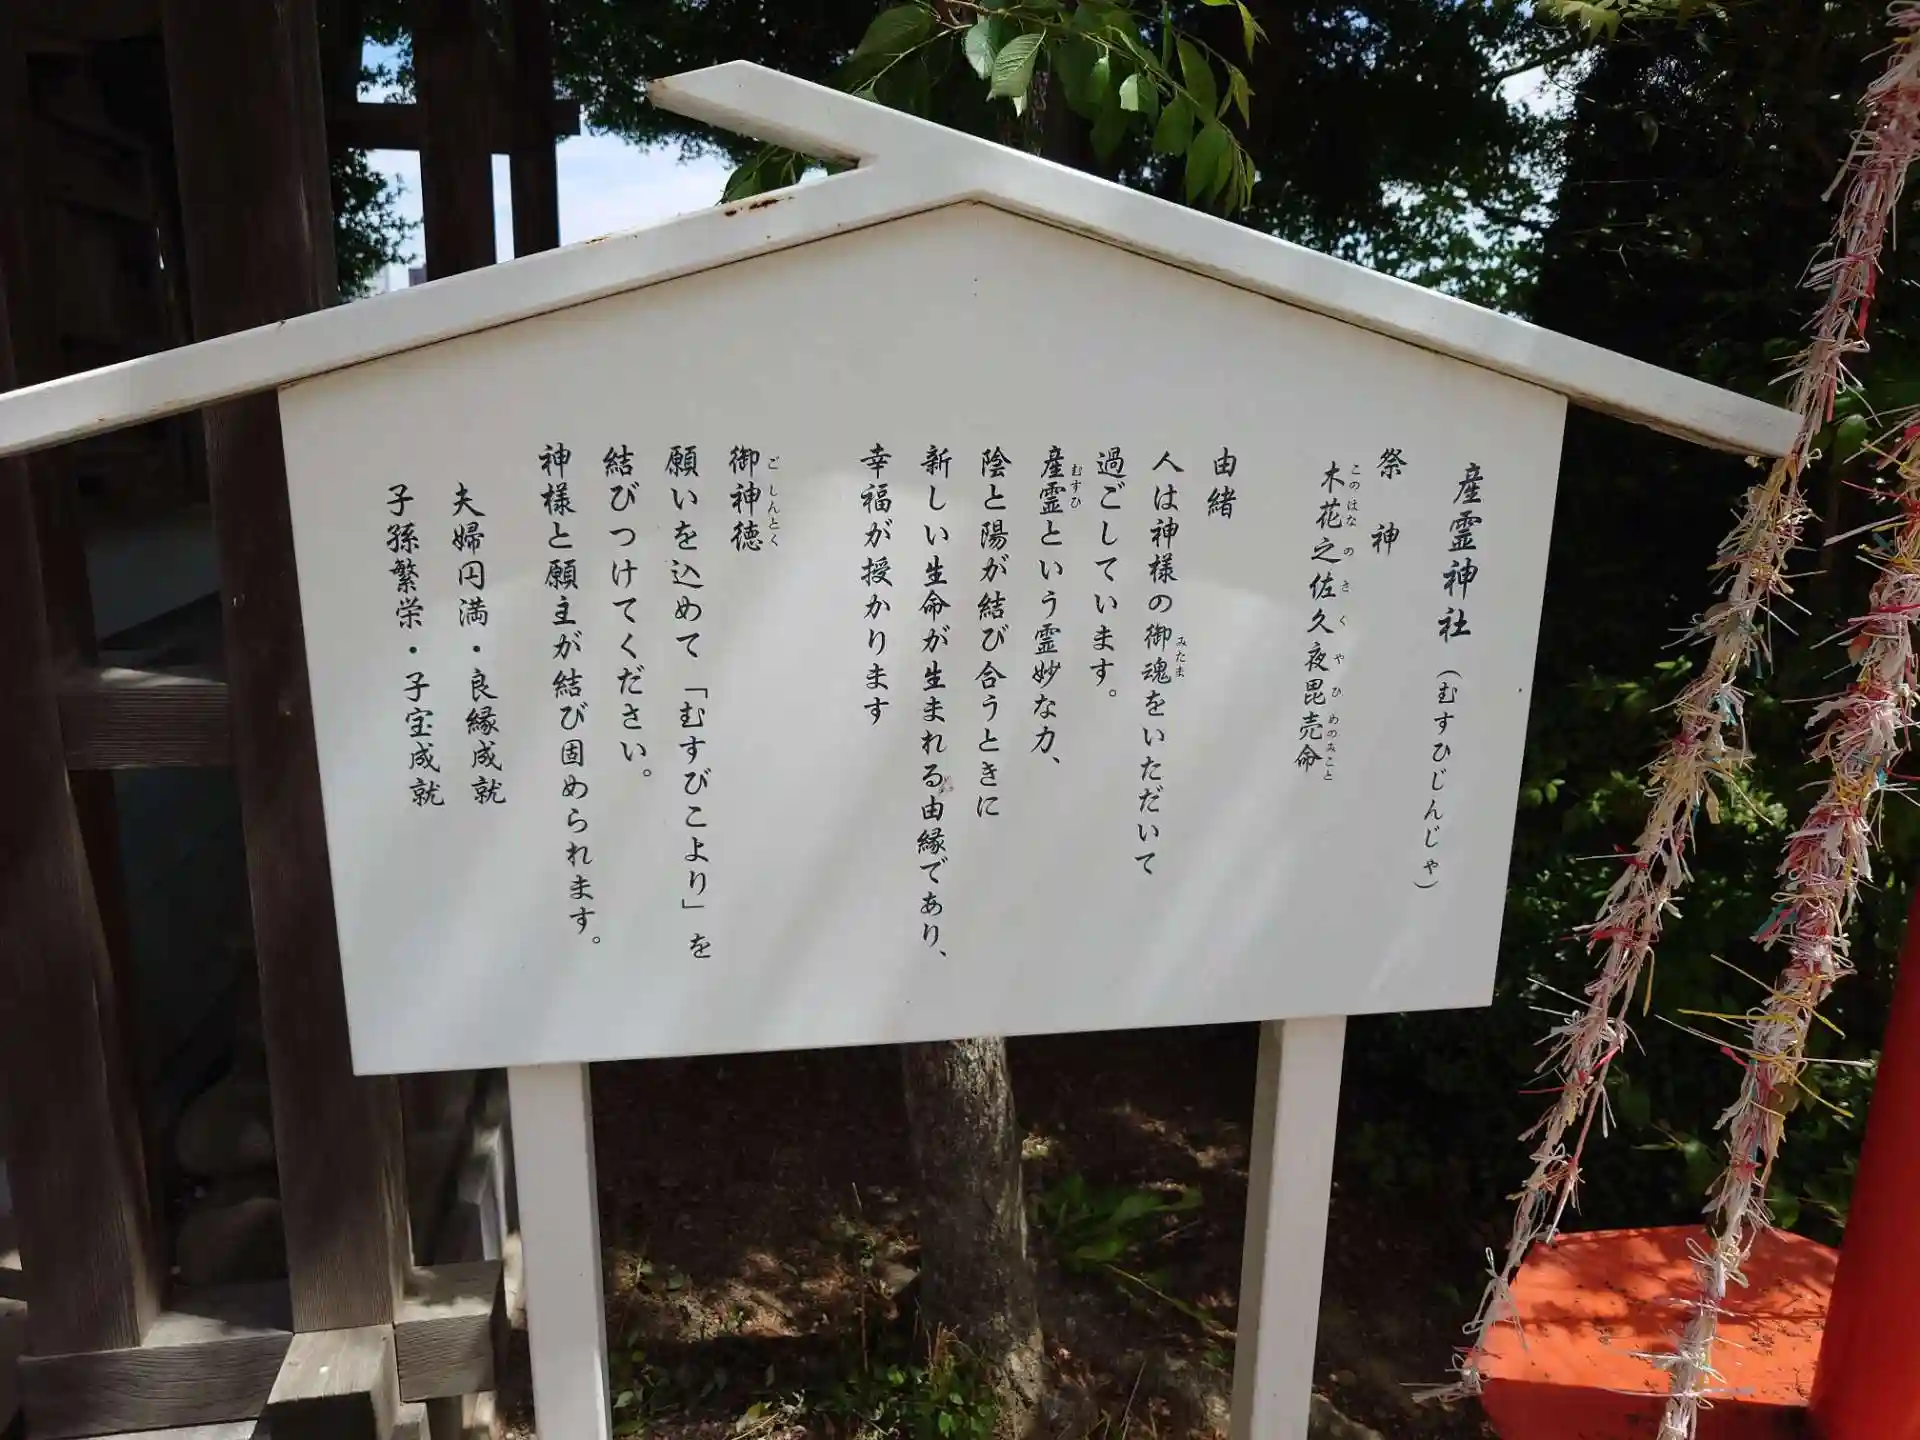 産霊神社（むすひじんじゃ）
祭神
木花之佐久夜毘売命
このはなのさくやひめのみこと
由緒
人は神様の御魂をいただいて
みたま
過ごしています。
産霊という霊妙な力、
むすひ
陰と陽が結び合うときに
新しい生命が生まれる由縁であり、
幸福が授かります
御神徳
ごしんとく
願いを込めて「むすびこより」を
結びつけてください。
神様と願主が結び固められます。
夫婦円満・良縁成就
子孫繁栄・子宝成就